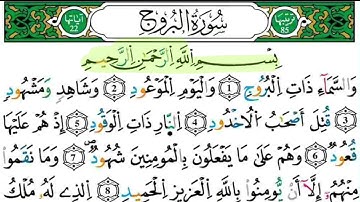 ترتيبها 85 سُورَةُ الْبُرُوجِ آياتها 22
بِسْمِ اللَّهِ الرَّحْمَٰنِ الرَّحِيمِ
وَالسَّمَآءِ ذَاتِ الْبُرُوجِ ① وَالْيَوْمِ الْمَوْعُودِ ② وَشَاهِدٍ وَمَشْهُودٍ
③ قُتِلَ أَصْحَٰبُ الْأُخْدُودِ ④ النَّارِ ذَاتِ الْوَقُودِ ⑤ إِذْ هُمْ عَلَيْهَا
قُعُودٌ ⑥ وَهُمْ عَلَىٰ مَا يَفْعَلُونَ بِالْمُومِنِينَ شُهُودٌ ⑦ وَمَا نَقَمُوا
مِنْهُمْ إِلَّا أَنْ يُومِنُوا بِاللَّهِ الْعَزِيزِ الْحَمِيدِ ⑧ الَّذِي لَهُ مُلْكُ